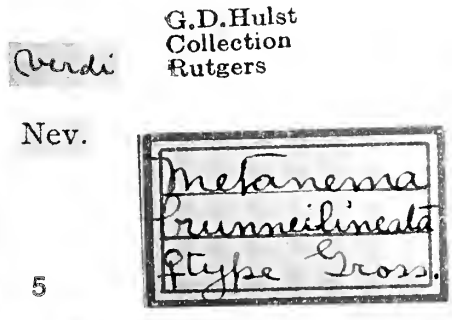 G.D.Hulst
Collection
Rutgers
Verdi
Nev.
Metanema
brunneilineata
♀type Gross.
5